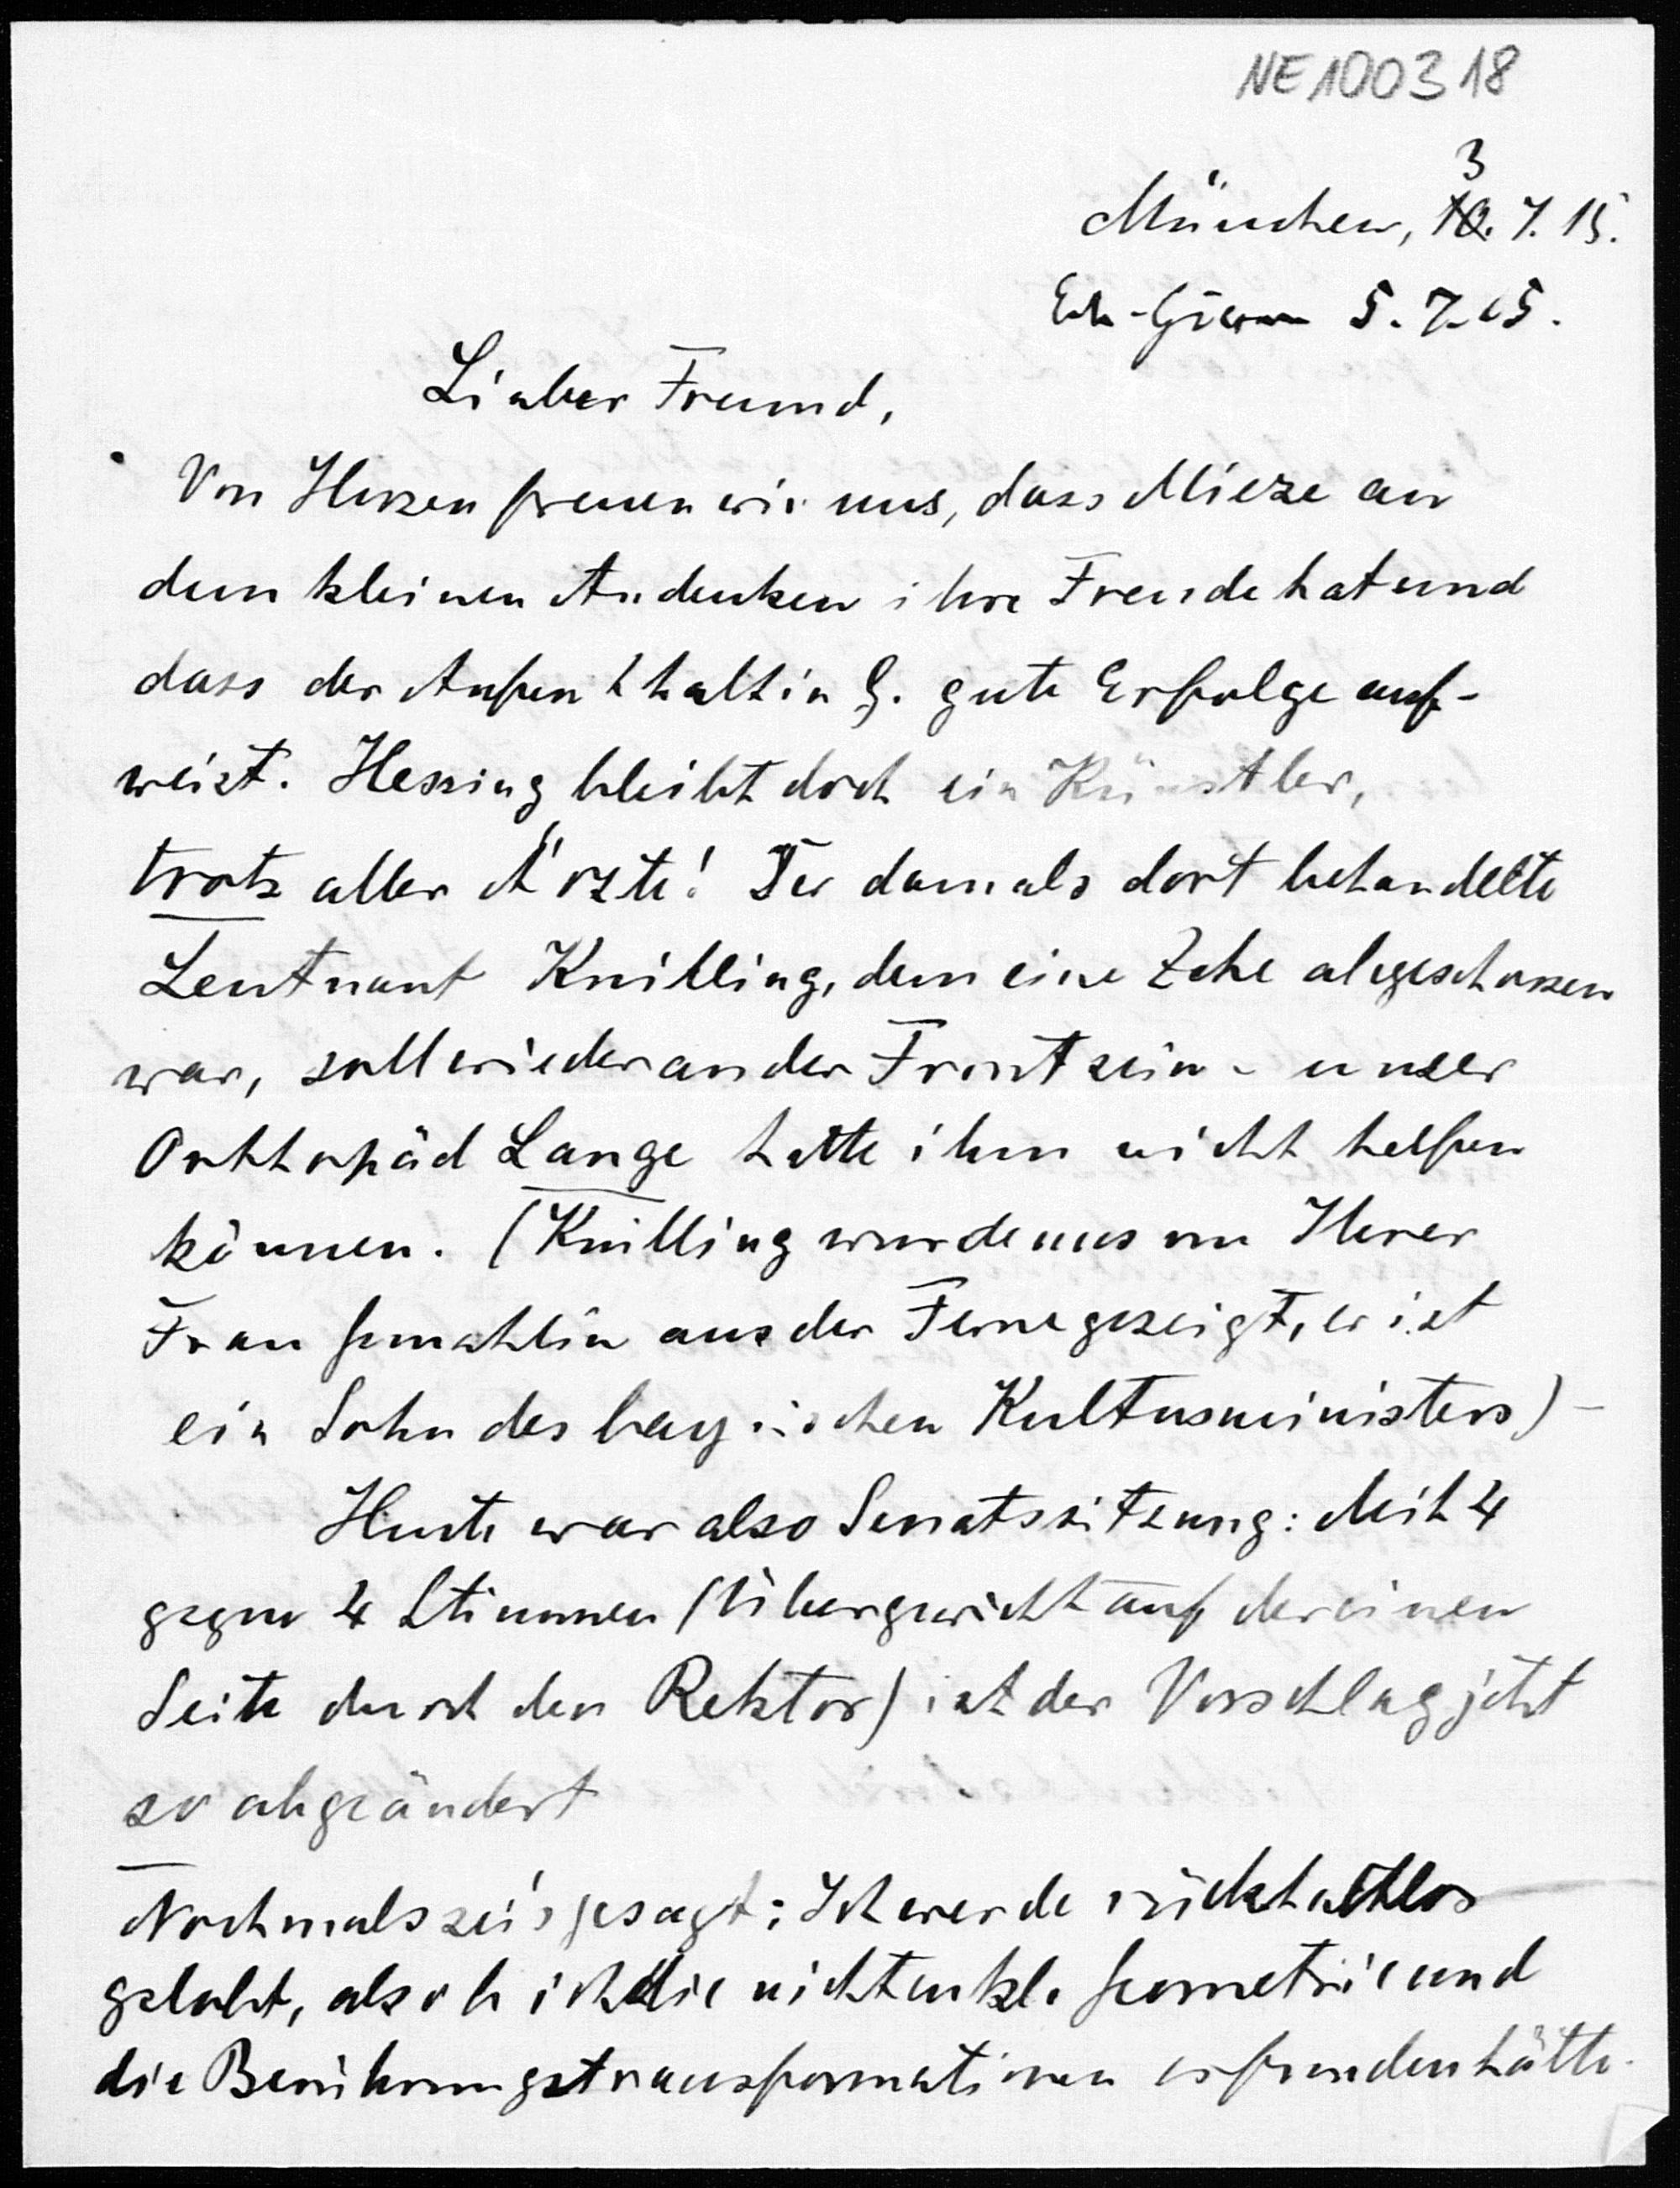 NE100318
3
München, 10. 7. 15.
5. 7. 15.
Lieber Freund,
Von Herzen freuen wir uns, dass Mieze an
dem kleinen Andenken ihre Freude hat und
dass der Aufenthalt in G. gute Erfolge auf-
weist. Hessing bleibt doch ein Künstler,
trotz aller Ärzte! Der damals dort behandelte
Leutnant Knilling, dem eine Zehe abgeschossen
war, soll wieder an der Front sein - unser
Orthopäd Lange hatte ihm nicht helfen
können. (Knilling wurde uns von Ihrer
Frau Gemahlin aus der Ferne gezeigt, er ist
ein Sohn des bayrischen Kultusministers) -
Heute war also Senatssitzung: Mit 4
gegen 4 Stimmen (Übergewicht auf der einen
Seite durch den Rektor) ist der Vorschlag jetzt
so abgeändert
Nochmals sei's gesagt: Ich werde rückhaltlos
gelobt, als ob ich die nichteukl. Geometrie und
die Berührungstransformationen erfunden hätte.